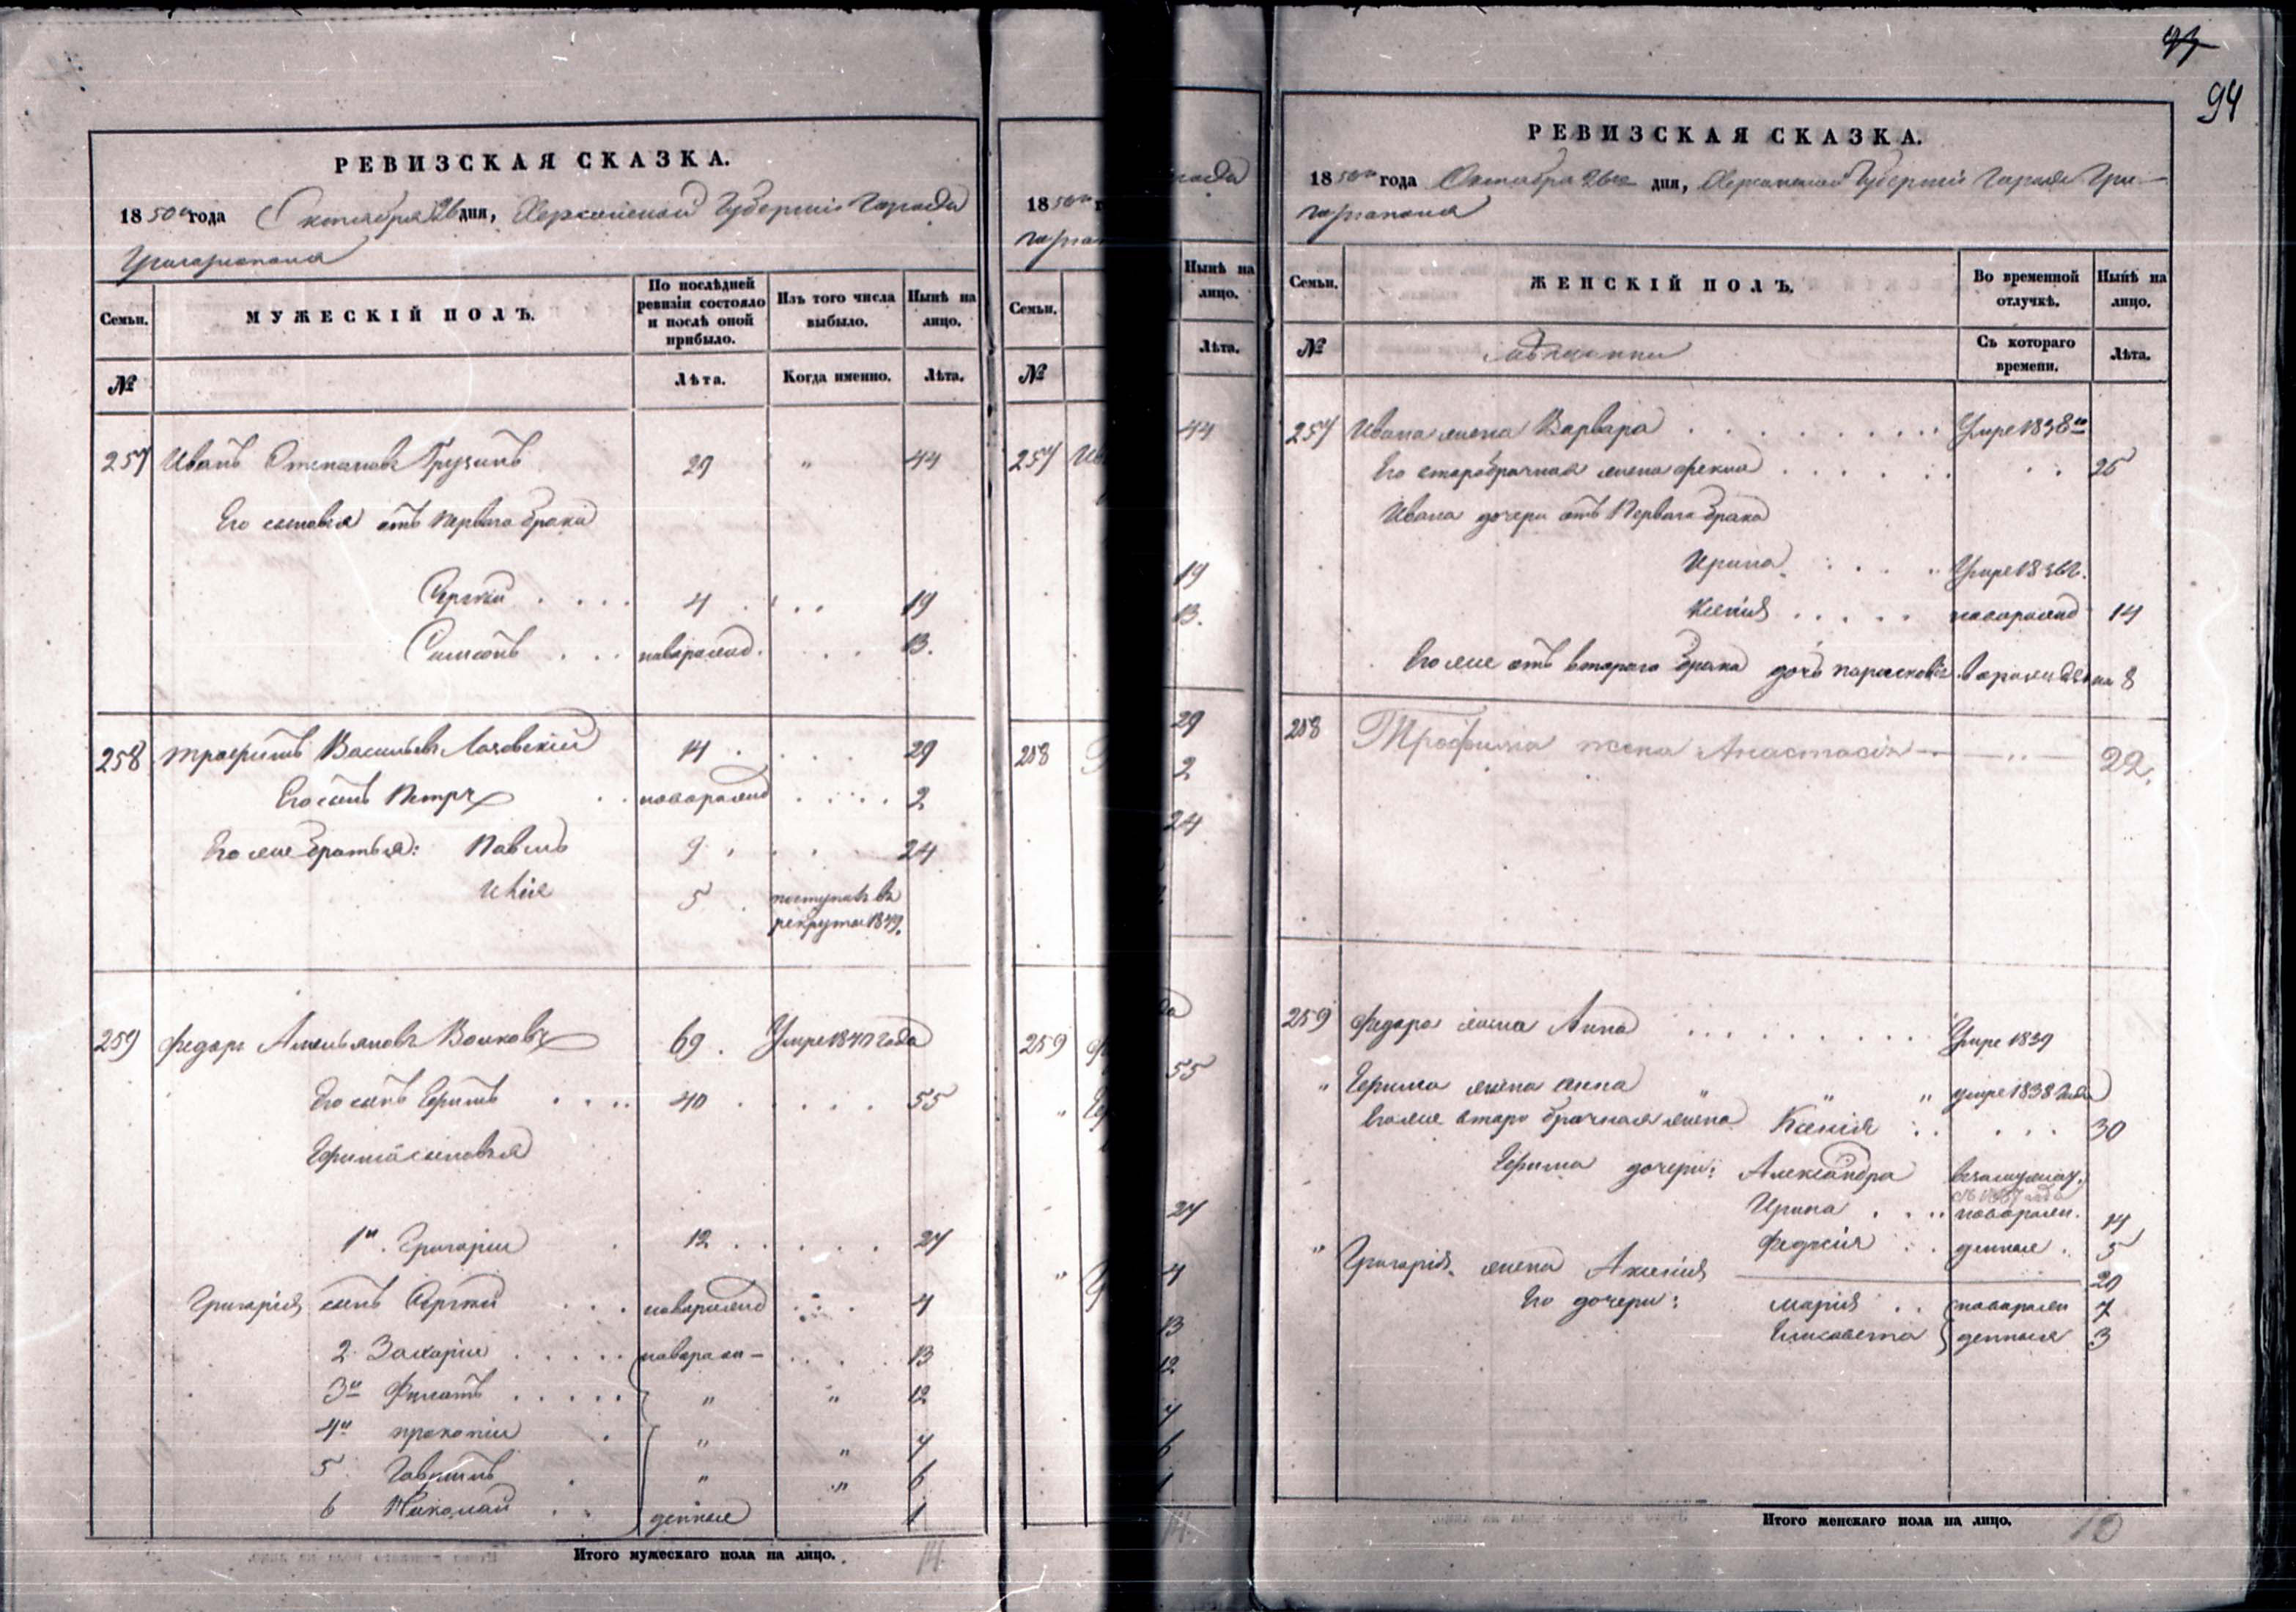 РЕВИЗСКАЯ СКАЗКА.
1850го года Октября 26 дня, Херсонской Губернiи Города
Григорiополя
Семьи. МУЖЕСКIЙ ПОЛЪ. По послѣдней ревизiи состояло и послѣ оной прибыло. Изъ того числа выбыло. Нынѣ на лицо.
№ Лѣта. Когда именно. Лѣта.
257 Иванъ Степановъ Грузинъ 29 " 44
Его сыновья отъ перваго брака
Сергѣй 4 19
Симеонъ новорожд. 13.
258 Трофимъ Васильевъ Лозовскiй 14 29
Его сынъ Петръ новорожд 2
Его же братья: Павелъ 9 24
Илiя 5 поступилъ въ
рекруты 1849.
259 Федоръ Амельяновъ Волковъ 69. Умре 1840 года
Его сынъ Ефимъ 40 55
Ефима сыновья
1й. Григорiй 12 27
Григорiя сынъ Сергѣй новорожд 4
2. Захарiй новорож- 13
3й Филатъ " " 12
4й Прокопiй " " 7
5 Гаврiилъ " " 6
6 Николай денные 1
Итого мужескаго пола на лицо. 14
1850го г
Семьи.
№
257 Ив
258
259
рода
Нынѣ на
лицо.
Лѣта.
44
19
13.
29
2
24
55
27
4
13
12
7
6
1
94
РЕВИЗСКАЯ СКАЗКА.
1850го года Октября 26го дня, Херсонской Губернiи Города Гри-
горiополя
Семьи. ЖЕНСКIЙ ПОЛЪ. Во временной отлучкѣ. Нынѣ на лицо.
№ Съ котораго времени. Лѣта.
257 Ивана жена Варвара Умре 1838го
Его второбрачная жена Фекла 25
Ивана дочери отъ Перваго брака
Ирина Умре 1836г.
Ксенiя новорожд 14
Его же отъ втораго брака дочь Парасковiя 8
258 Трофима жена Анастасiя — " — 22.
259 Федора жена Анна Умре 1839
" Ефима жена Анна " " " умре 1838 года
Его же второбрачная жена Ксенiя 30
Ефима дочери: Александра
Ирина новорож. 14
денные 5
" Григорiя жена Аксенiя 20
Его дочери: Марiя новорож 7
Елисавета денныя 3
Итого женскаго пола на лицо. 10